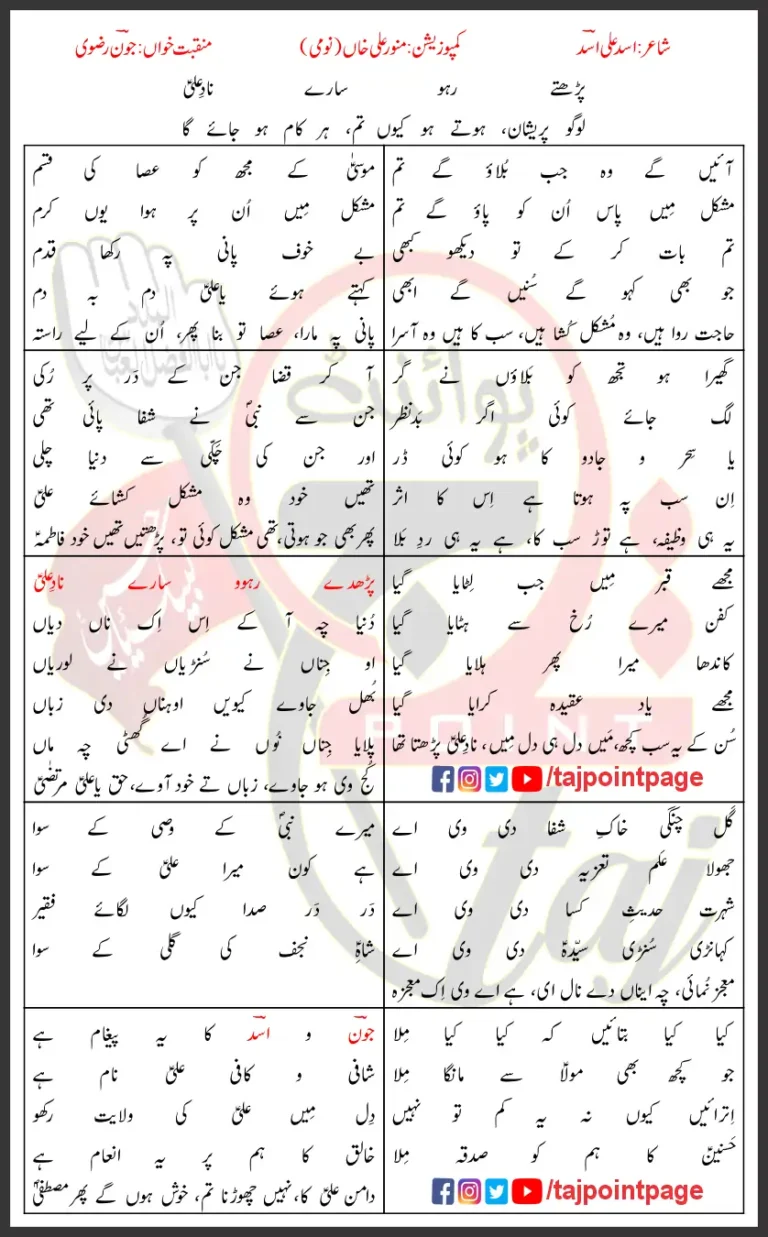 شاعر: اسد علی اسدؔ
کمپوزیشن: منور علی خاں (نومی)
منقبت خواں: جونؔ رضوی
پڑھتے رہو سارے نادِ علیؑ
لوگو پریشان، ہوتے ہو کیوں تم، ہر کام ہو جائے گا
آئیں گے وہ جب بُلاؤ گے تم
مشکل مِیں پاس اُن کو پاؤ گے تم
تم بات کر کے تو دیکھو کبھی
جو بھی کہو گے سُنیں گے ابھی
حاجت روا ہیں، وہ مُشکل کُشا ہیں، سب کا ہیں وہ آسرا
موسیٰؑ کے مجھ کو عصا کی قسم
مشکل مِیں اُن پر ہوا یوں کرم
بے خوف پانی پہ رکھا قدم
کہتے ہوئے یاعلیؑ دم بہ دم
پانی پہ مارا، عصا تو بنا پھر، اُن کے لیے راستہ
گھیرا ہو تجھ کو بَلاؤں نے گر
لگ جائے کوئی اگر بَدنظر
یا سَحَر و جادو کا ہو کوئی ڈر
اِن سب پہ ہوتا ہے اِس کا اثر
یہ ہی وظیفہ، ہے توڑ سب کا، ہے یہ ہی ردِ بلا
آ کر قضا جن کے دَر پر رُکی
جن سے نبیؐ نے شفا پائی تھی
اور جن کی چَکّی سے دنیا چلی
تھیں خود وہ مشکل کشائے علیؑ
پھر بھی جو ہوتی، تھی مشکل کوئی تو، پڑھتیں تھیں خود فاطمہؑ
مجھے قبر مِیں جب لِٹایا گیا
کفن میرے رُخ سے ہٹایا گیا
کاندھا میرا پھر ہلایا گیا
مجھے یاد عقیدہ کرایا گیا
سُن کے یہ سب کچھ، مَیں دل ہی دل مِیں، نادِ علیؑ پڑھتا تھا
/tajpointpage
پڑھدے رہوو سارے نادِ علیؑ
دُنیا چہ آ کے اِس اِک ناں دیاں
او جِناں نے سُنڑیاں نے لوریاں
بُھل جاوے کیویں اوہناں دی زباں
پلایا جِناں نُوں نے اے گُھٹی چہ ماں
کُج وی ہو جاوے، زباں تے خود آوے، حق یاعلیؑ مرتضیٰؑ
گل چنگی خاکِ شفا دی وی اے
جھولا علم تعزیہ دی وی اے
شہرت حدیثِ کسا دی وی اے
کہانڑی سُنڑی سیّدہؑ دی وی اے
معجز نُمائی، چہ ایناں دے نال ای، ہے اے وی اِک معجزہ
میرے نبیؐ کے وصی کے سوا
ہے کون میرا علیؑ کے سوا
دَر دَر صدا کیوں لگائے فقیر
شاہِؑ نجف کی گلی کے سوا
کیا کیا بتائیں کہ کیا کیا مِلا
جو کچھ بھی مولاؑ سے مانگا مِلا
اِترائیں کیوں نہ یہ کم تو نہیں
حَسنینؑ کا ہم کو صدقہ مِلا
/tajpointpage
جونؔ و اسدؔ کا یہ پیغام ہے
شافی و کافی علیؑ نام ہے
دِل مِیں علیؑ کی ولایت رکھو
خالق کا ہم پر یہ انعام ہے
دامن علیؑ کا، نہیں چھوڑنا تم، خوش ہوں گے پھر مصطفیٰؐ
پوائنٹ
POINT
taj